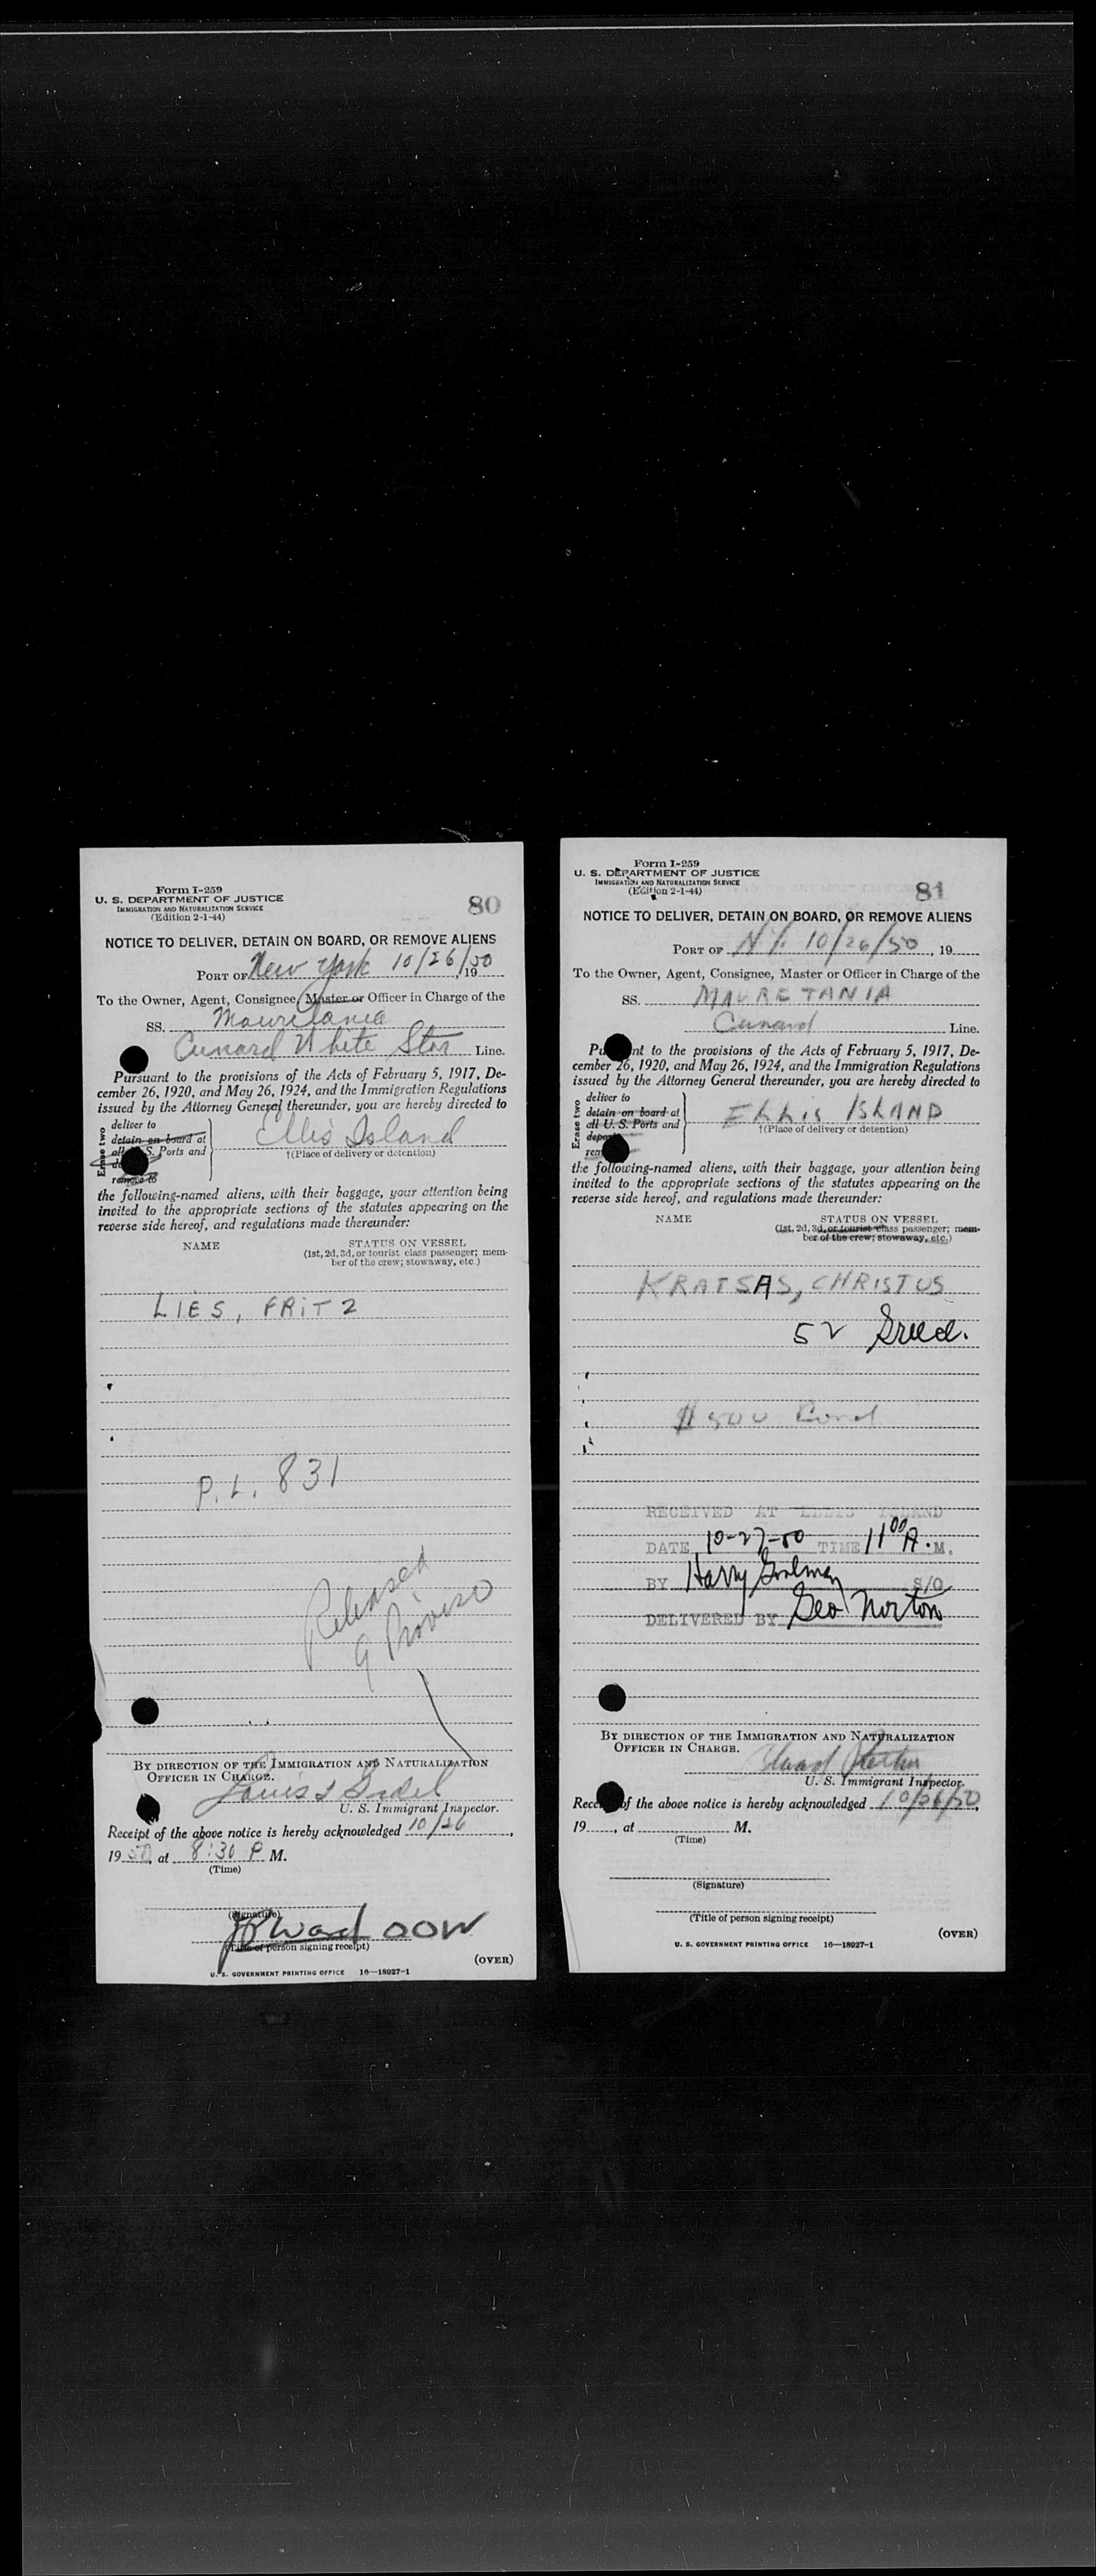 Form I-259
U. S. DEPARTMENT OF JUSTICE
IMMIGRATION AND NATURALIZATION SERVICE
(Edition 2-1-44)
80
NOTICE TO DELIVER, DETAIN ON BOARD, OR REMOVE ALIENS
PORT OF New York 10/26/50, 19
To the Owner, Agent, Consignee, Master or Officer in Charge of the
SS. Mauretania
Cunard White Star Line.
Pursuant to the provisions of the Acts of February 5, 1917, De-
cember 26, 1920, and May 26, 1924, and the Immigration Regulations
issued by the Attorney General thereunder, you are hereby directed to
Erase two
deliver to
detain on board at
all U. S. Ports and
remove to
Ellis Island
†(Place of delivery or detention)
the following-named aliens, with their baggage, your attention being
invited to the appropriate sections of the statutes appearing on the
reverse side hereof, and regulations made thereunder:
NAME STATUS ON VESSEL
(1st, 2d, 3d, or tourist class passenger; mem-
ber of the crew; stowaway, etc.)
LIES, FRITZ
P. L. 831
Released
9 Proviso
BY DIRECTION OF THE IMMIGRATION AND NATURALIZATION
OFFICER IN CHARGE.
Louis
U. S. Immigrant Inspector.
Receipt of the above notice is hereby acknowledged 10/26,
1950, at 8:30 P M.
(Time)
(Signature)
Ward OOW
(Title of person signing receipt)
(OVER)
U. S. GOVERNMENT PRINTING OFFICE 16—18027-1
Form I-259
U. S. DEPARTMENT OF JUSTICE
IMMIGRATION AND NATURALIZATION SERVICE
(Edition 2-1-44)
81
NOTICE TO DELIVER, DETAIN ON BOARD, OR REMOVE ALIENS
PORT OF N.Y. 10/26/50, 19
To the Owner, Agent, Consignee, Master or Officer in Charge of the
SS. MAURETANIA
Cunard Line.
nt to the provisions of the Acts of February 5, 1917, De-
cember 26, 1920, and May 26, 1924, and the Immigration Regulations
issued by the Attorney General thereunder, you are hereby directed to
Erase two
deliver to
detain on board at
all U. S. Ports and
ELLIS ISLAND
†(Place of delivery or detention)
the following-named aliens, with their baggage, your attention being
invited to the appropriate sections of the statutes appearing on the
reverse side hereof, and regulations made thereunder:
NAME STATUS ON VESSEL
(1st, 2d, 3d, or tourist class passenger; mem-
ber of the crew; stowaway, etc.)
KRATSAS, CHRISTUS
52
$500 Bond
RECEIVED AT ELLIS ISLAND
DATE 10-27-50 TIME 11 00 A. M.
BY Harry S/O
DELIVERED BY Geo Norton
BY DIRECTION OF THE IMMIGRATION AND NATURALIZATION
OFFICER IN CHARGE.
U. S. Immigrant Inspector.
of the above notice is hereby acknowledged 10/26/50,
19, at M.
(Time)
(Signature)
(Title of person signing receipt)
(OVER)
U. S. GOVERNMENT PRINTING OFFICE 16—18027-1